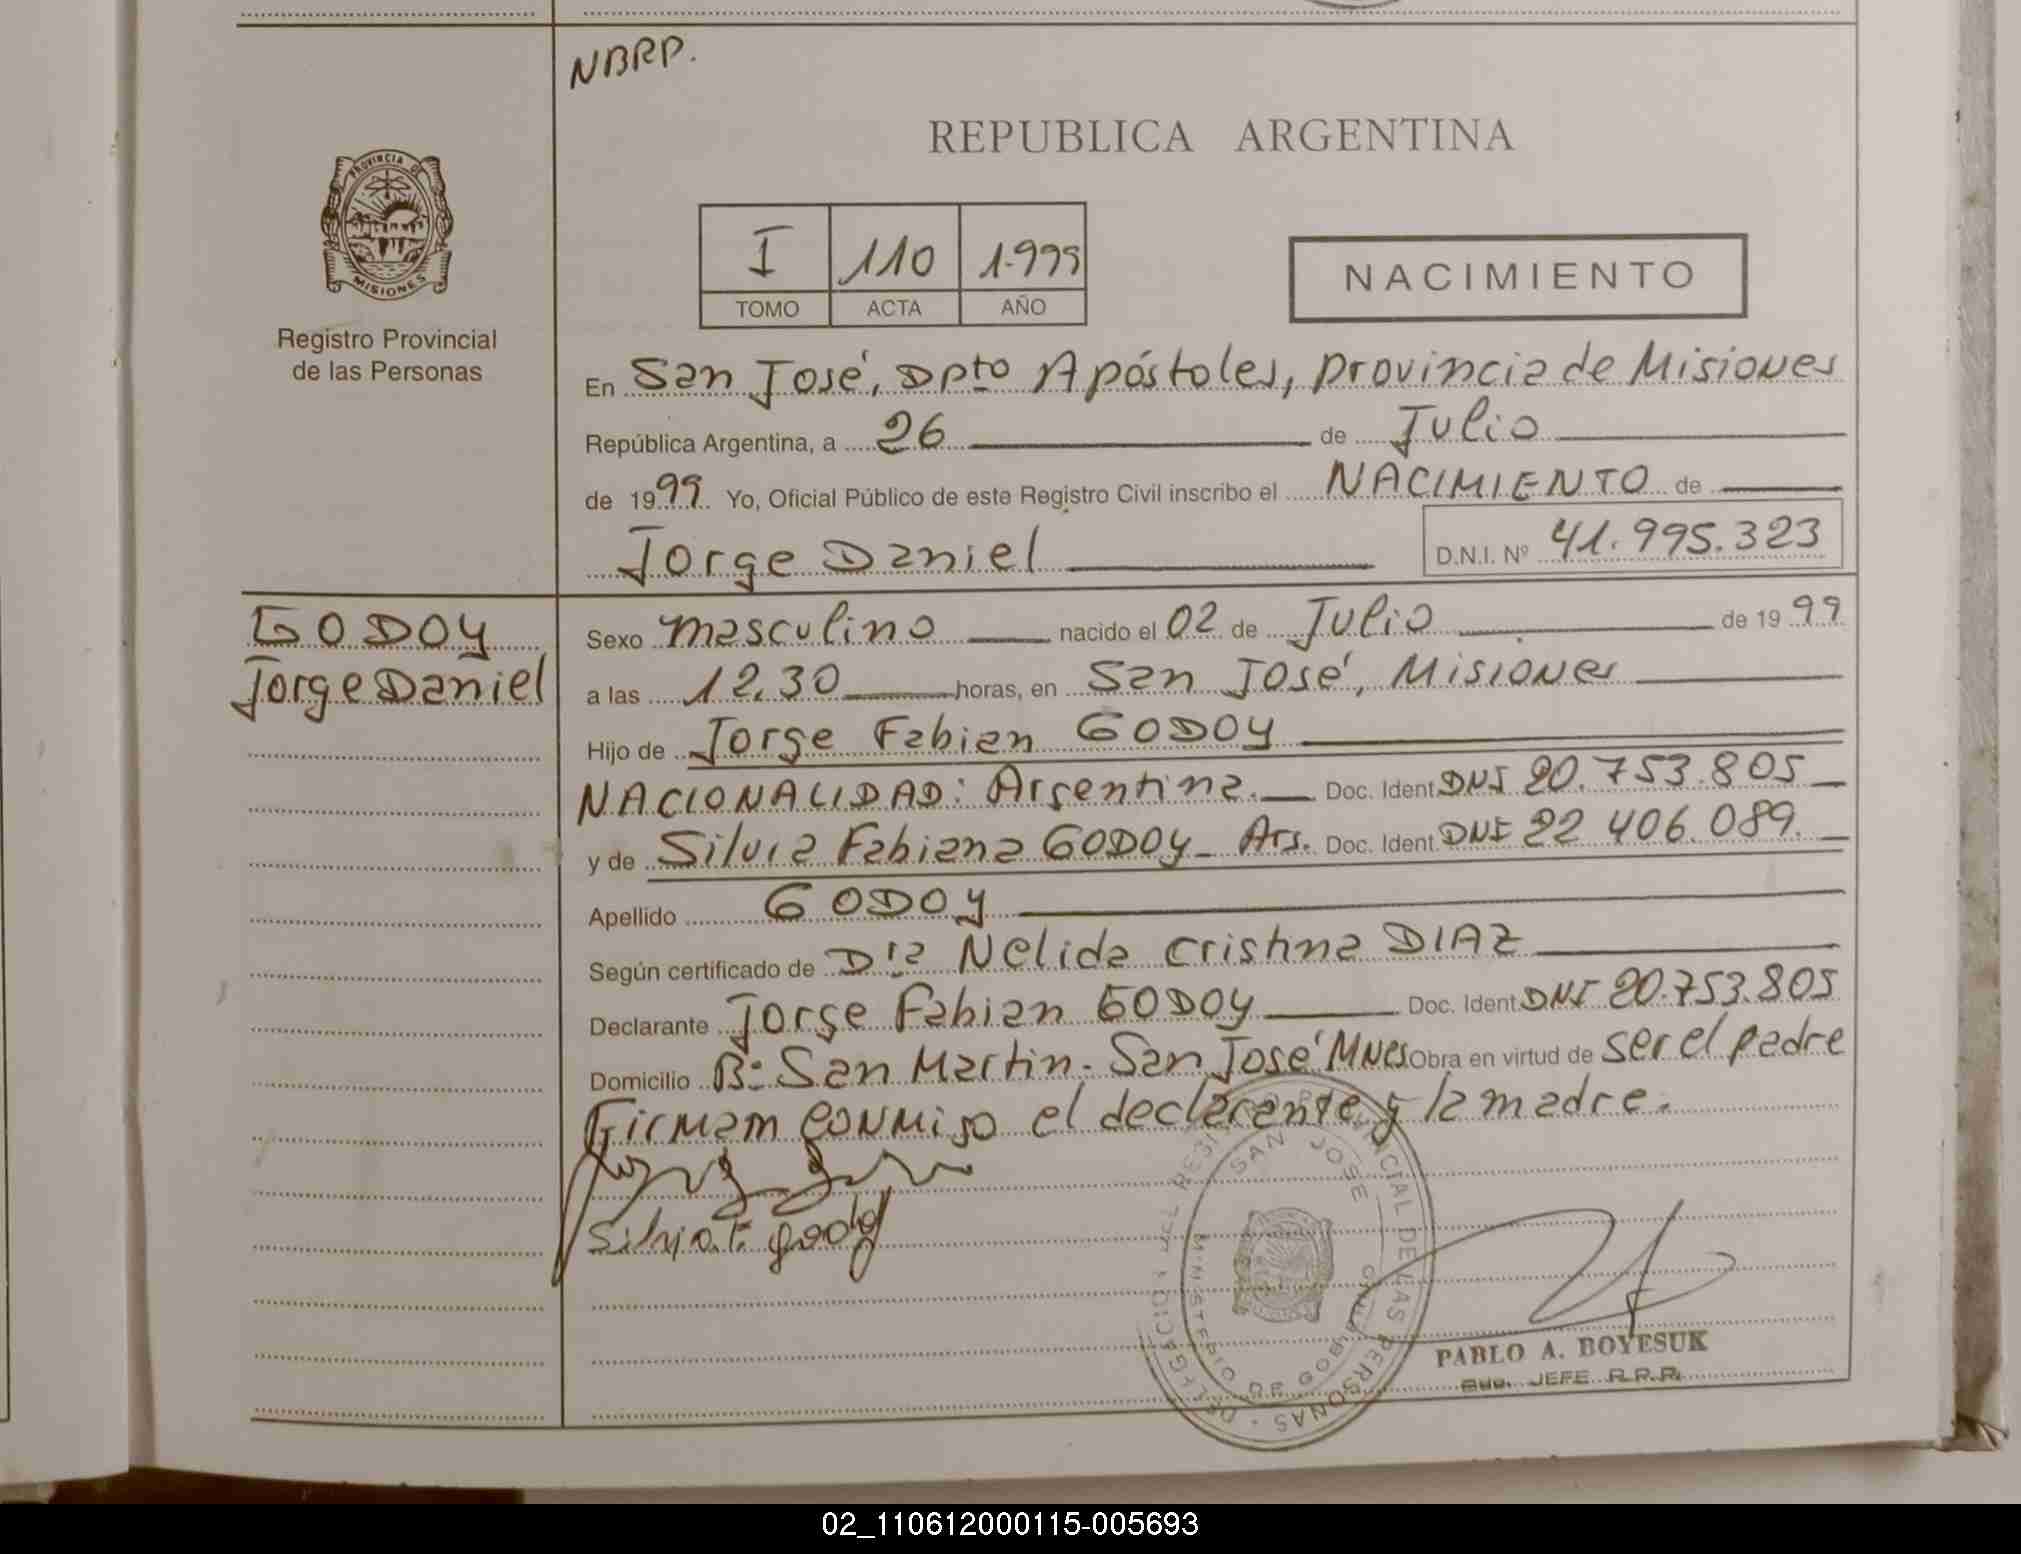 NBRP.
REPUBLICA ARGENTINA
PROVINCIA DE
MISIONES
Registro Provincial
de las Personas
I 110 1.999
TOMO ACTA AÑO
NACIMIENTO
En San José, Dpto Apóstoles, provincia de Misiones
República Argentina, a 26 de Julio
de 1999. Yo, Oficial Público de este Registro Civil inscribo el NACIMIENTO de
Jorge Daniel D.N.I. Nº 41.995.323
GODOY
Jorge Daniel
Sexo masculino nacido el 02 de Julio de 1999
a las 12.30 horas, en San José, Misiones
Hijo de Jorge Fabian GODOY
NACIONALIDAD: Argentina. Doc. Ident DNI 20.753.805
y de Silvia Fabiana GODOY - Arg. Doc. Ident. DNI 22 406.089.
Apellido GODOY
Según certificado de Dra Nelida Cristina DIAZ
Declarante Jorge Fabian GODOY Doc. Ident DNI 20.753.805
Domicilio B: San Martin - San José Mnes Obra en virtud de ser el padre
Firmam conmigo el declarante y la madre.
Silvia F. godoy
SAN JOSE
MINISTERIO DE GOBIERNO
PROVINCIAL DE LAS PERSONAS
PABLO A. BOYESUK
JEFE R.P.P.
02_110612000115-005693